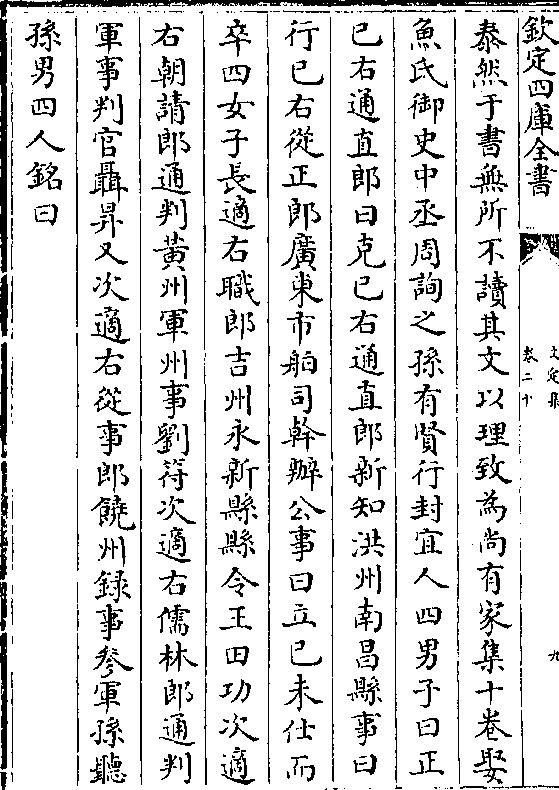 欽定四庫全書
文定集
卷二十
九
泰然于書無所不讀其文以理致為尚有家集十卷娶
魚氏御史中丞周詢之孫有賢行封宜人四男子曰正
已右通直郎曰克已右通直郎新知洪州南昌縣事曰
行已右從正郎廣東市舶司幹辦公事曰立已未仕而
卒四女子長適右職郎吉州永新縣縣令王田功次適
右朝請郎通判黃州軍州事劉符次適右儒林郎通判
軍事判官聶昇又次適右從事郎饒州錄事參軍孫聽
孫男四人銘曰